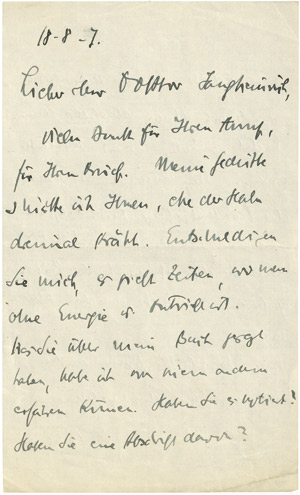 18-8-7.
Lieber Herr Doktor
vielen Dank für Ihren Anruf,
für Ihren Brief. Meine Gedichte
schicke ich Ihnen, ehe der Hahn
dreimal kräht. Entschuldigen
Sie mich, es gibt Zeiten, wo man
ohne Energie u. Antrieb ist.
Was Sie über mein Buch gesagt
haben, habe ich von einem andern
erfahren können. Haben Sie es notiert?
Haben Sie eine Abschrift davon?